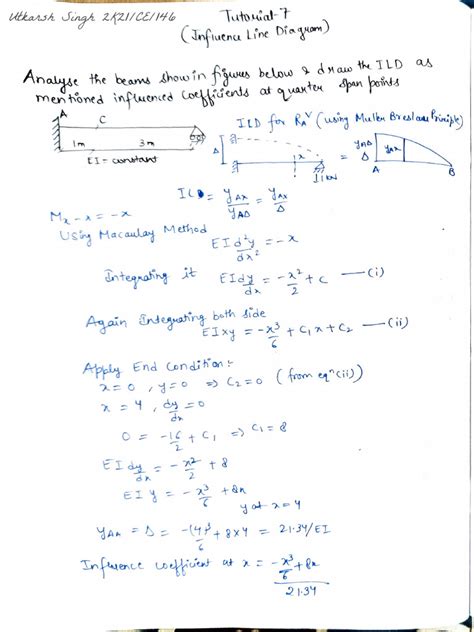 Utkarsh Singh 2K21/CE/146
Tutorial-7
(Influence Line Diagram)
Analyse the beams shown in figures below & draw the ILD as
mentioned influenced coefficients at quarter span points
A
C
1m
3m
EI = constant
ILD for RAV (using Muller Breslau Principle)
Δ
x
1kN
=
yAΔ
yAx
A
B
ILD = yAx/yAΔ = yAx/Δ
Mx-x = -x
Using Macaulay Method
EI d²y/dx² = -x
Integrating it EI dy/dx = -x²/2 + C —(i)
Again Integrating both side
EI x y = -x³/6 + C1x + C2 —(ii)
Apply End Condition:-
x = 0 , y = 0 => C2 = 0 (from eqn(ii))
x = 4 , dy/dx = 0
0 = -16/2 + C1 => C1 = 8
EI dy/dx = -x²/2 + 8
EI y = -x³/6 + 8x
y at x = 4
yAA = Δ = -(4)³/6 + 8x4 = 21.34/EI
Influence coefficient at x = (-x³/6 + 8x)/21.34